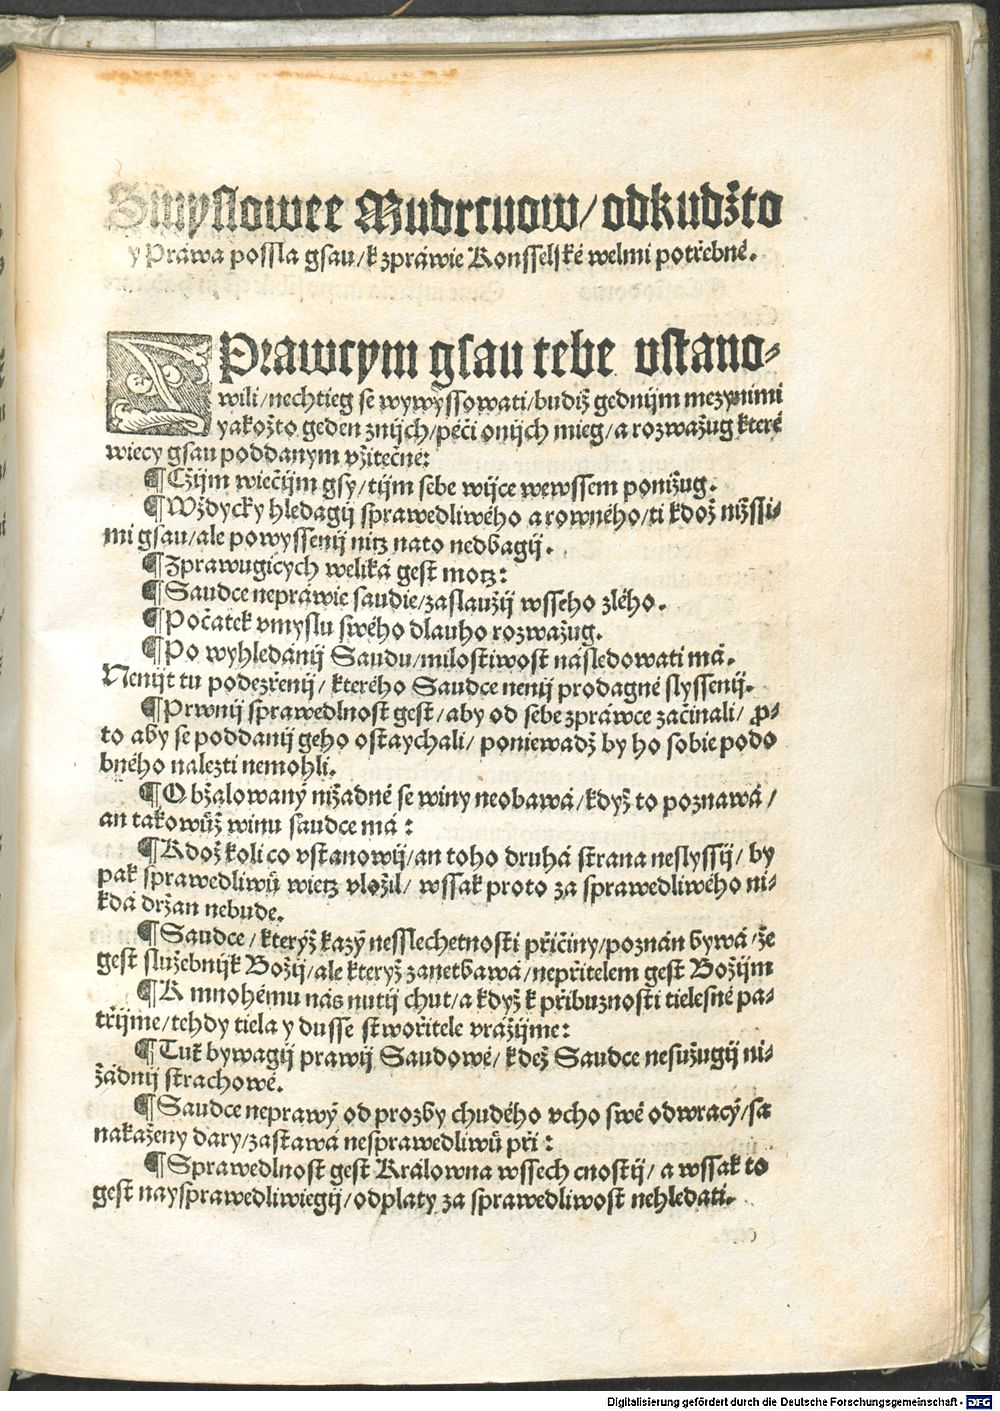 Smyslowee Mudrcuow/odkudžto
y Práwa possla gsau/k zpráwie Konsselské welmi potřebné.
ZPrawcym gsau tebe vstano-
wili/nechtieg se wywyssowati/budiž gednijm mezy nimi
yakožto geden znijch/péči onijch mieg/a rozwažug které
wiecy gsau poddanym vžitečné:
¶ Cžijm wiečijm gsy/tijm sebe wijce wewssem ponižug.
¶ Wždycky hledagij sprawedliwého a rowného/ti kdož nižssi-
mi gsau/ale powyssenij nitz nato nedbagij.
¶ Zprawugicych weliká gest motz:
¶ Saudce nepráwie saudie/zaslaužij wsseho zlého.
¶ Počatek vmyslu swého dlauho rozwažug.
¶ Po wyhledánij Saudu/milostiwost následowati má.
Nenijt tu podezřenij/kterého Saudce nenij prodagné slyssenij.
¶ Prwnij sprawedlnost gest/aby od sebe zpráwce začinali/pro-
to aby se poddanij geho ostaychali/poniewadž by ho sobie podo
bného nalezti nemohli.
¶ Obžalowaný nižadné se winy neobawá/když to poznawá/
an takowůž winu saudce má:
¶ Kdož koli co vstanowij/an toho druhá strana neslyssij/by
pak sprawedliwů wietz vložil/wssak proto za sprawedliwého ni-
kdá držan nebude.
¶ Saudce/kterýž kazý nesslechetnosti přičiny/poznán bywá/že
gest služebnijk Božij/ale kterýž zanetbawá/nepřitelem gest Božijm
¶ K mnohému nás nutij chut/a když k přibuznosti tielesné pa-
třijme/tehdy tiela y dusse stwořitele vrážijme:
¶ Tuť bywagij prawij Saudowé/kdež Saudce nesužugij ni-
žádnij strachowé.
¶ Saudce neprawý od prozby chudého vcho swé odwracý/sa
nakaženy dary/zastawá nesprawedliwů při:
¶ Sprawedlnost gest Králowna wssech cnostij/a wssak to
gest naysprawedliwiegij/odplaty za sprawedliwost nehledati.
Digitalisierung gefördert durch die Deutsche Forschungsgemeinschaft - DFG